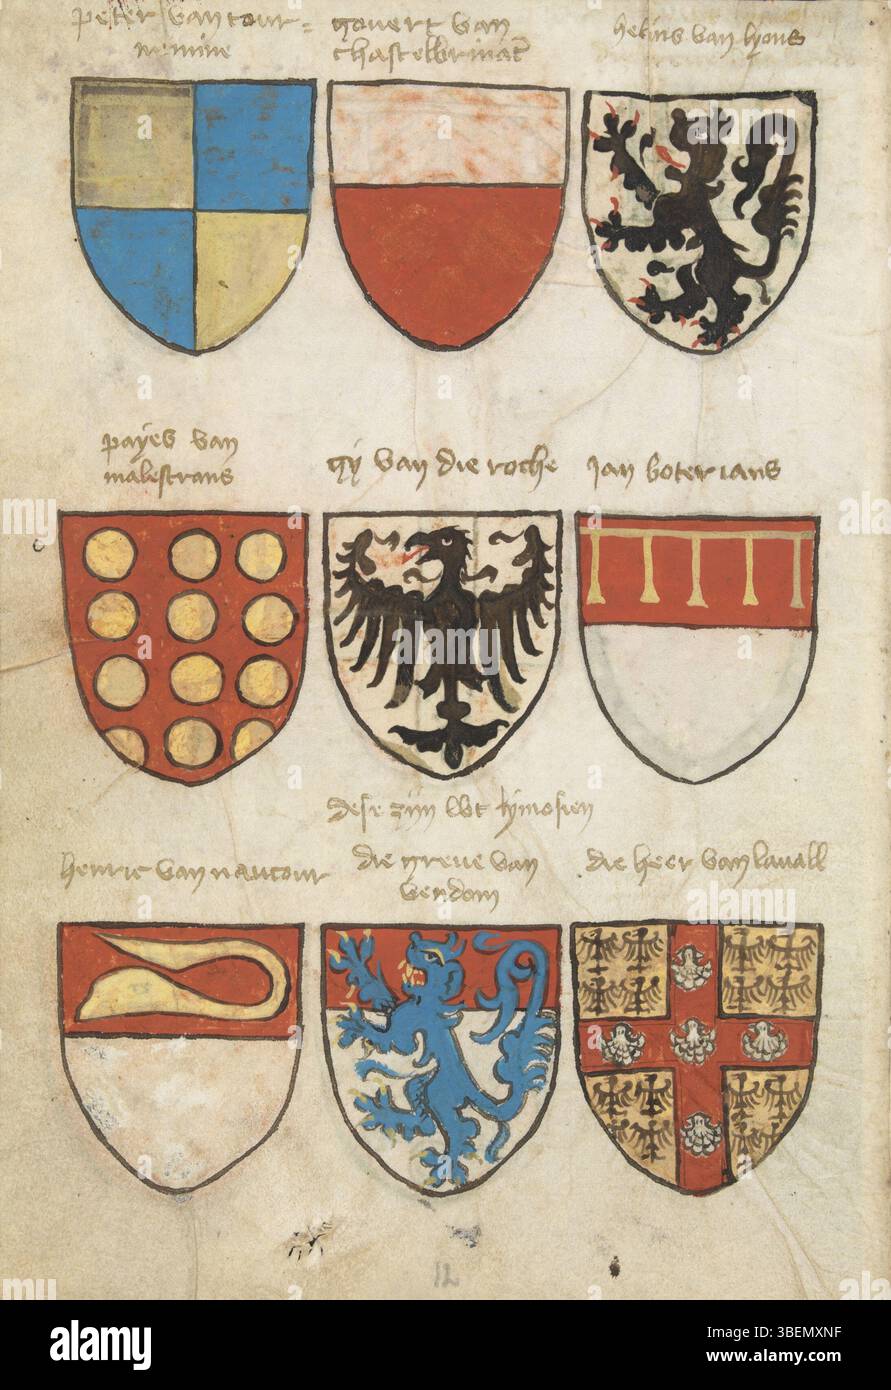 peter van tour=
nemine
govert van
chastelbrinac
helins van lyons
payes van
malestrans
gy van die roche
jan boterians
dese zijn wt lymosien
henric van nantour
die greve van
vendom
die heer van lavall
12
alamy
Image ID: 3BEMXNF
www.alamy.com